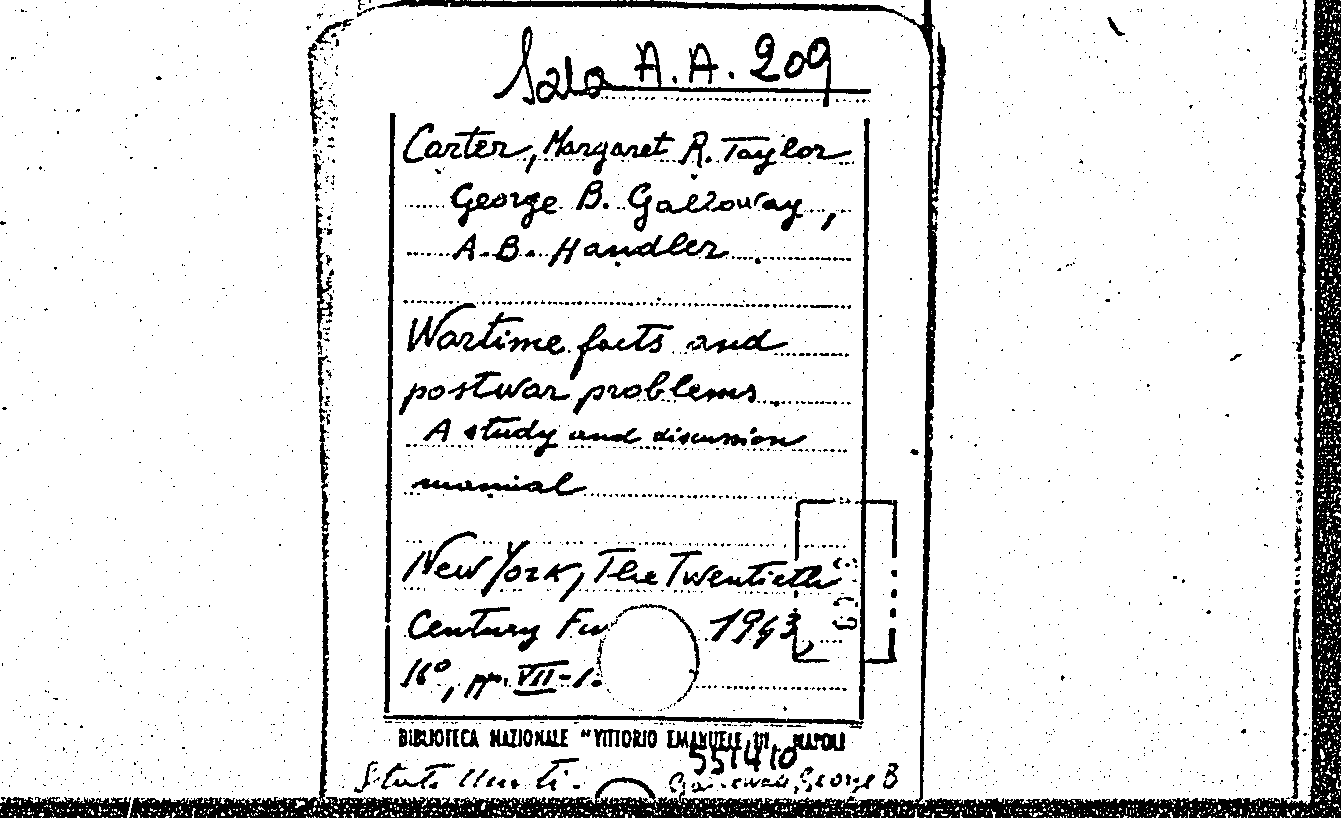 Sala A.A. 209
Carter, Margaret R. Taylor
George B. Galloway,
A.B. Handler.
Wartime facts and
postwar problems.
A study and discussion
manual
New York, The Twentieth
Century Fu 1943,
16°, pp. VII-1
BIBLIOTECA NAZIONALE "VITTORIO EMANUELE III NAPOLI
551410
Stati Uniti. George B